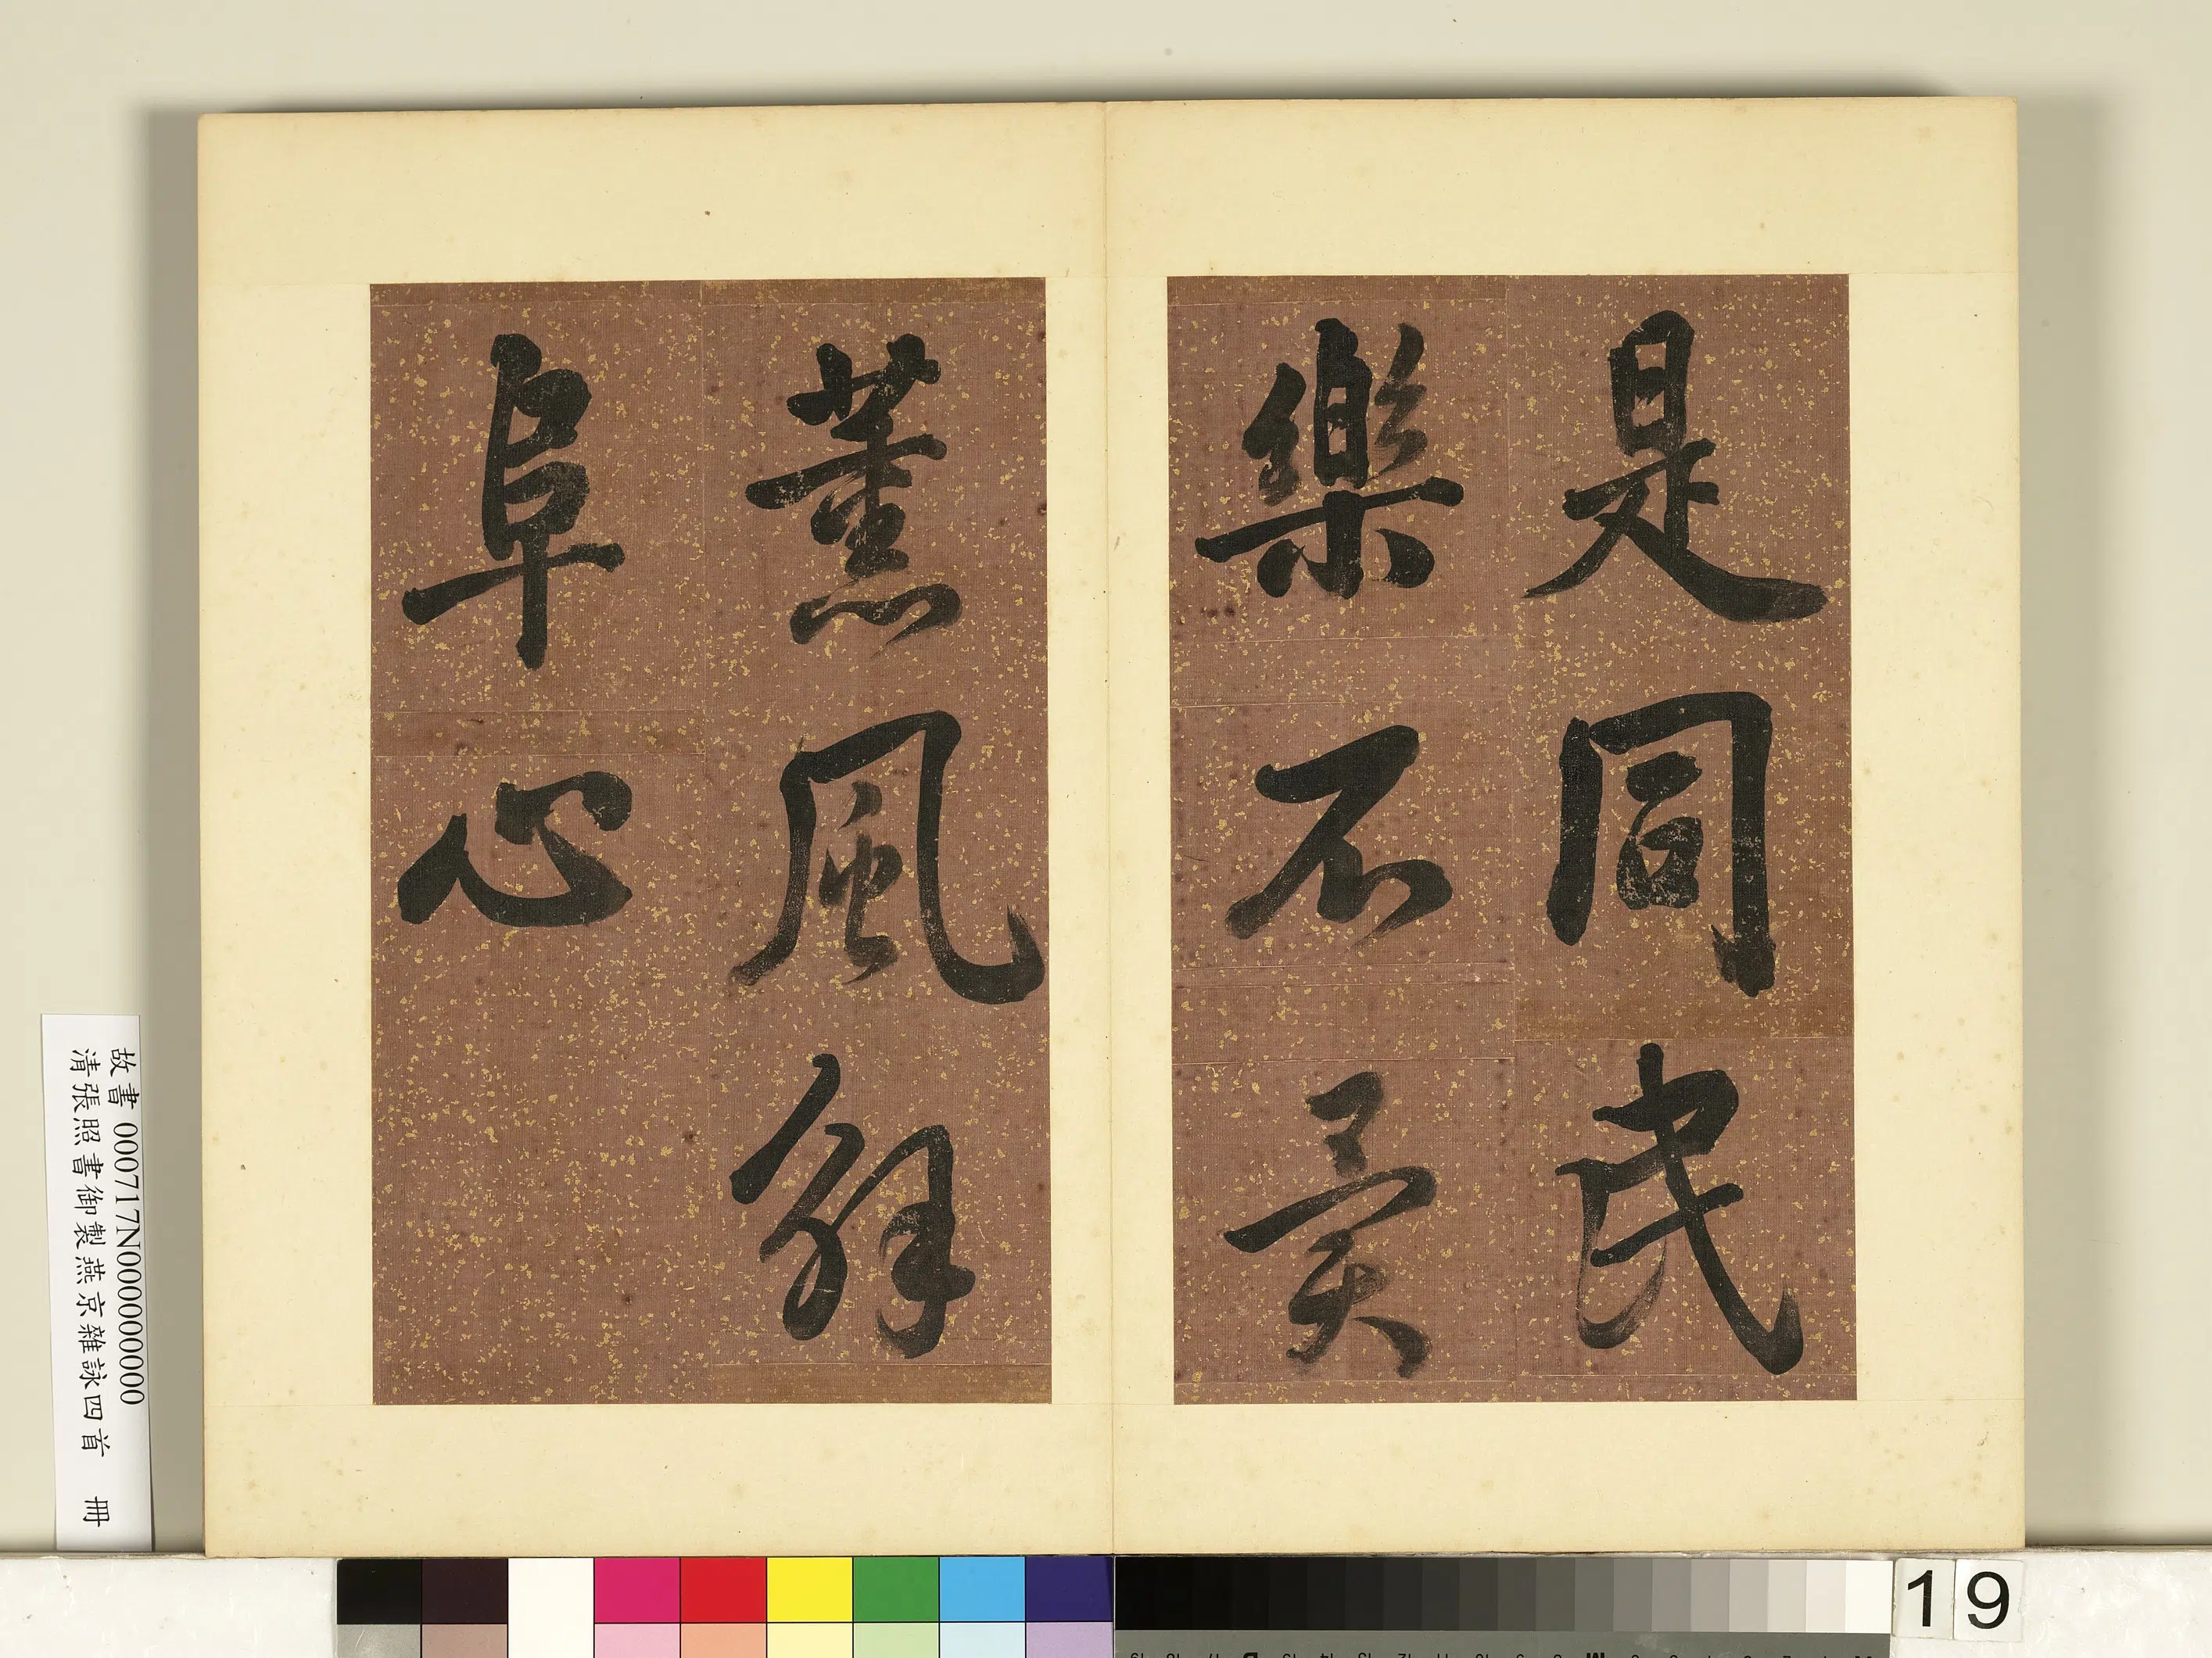 是同民
樂不異
薰風解
阜心
故書 000717N000000000
清張照書御製燕京雜詠四首 冊
19